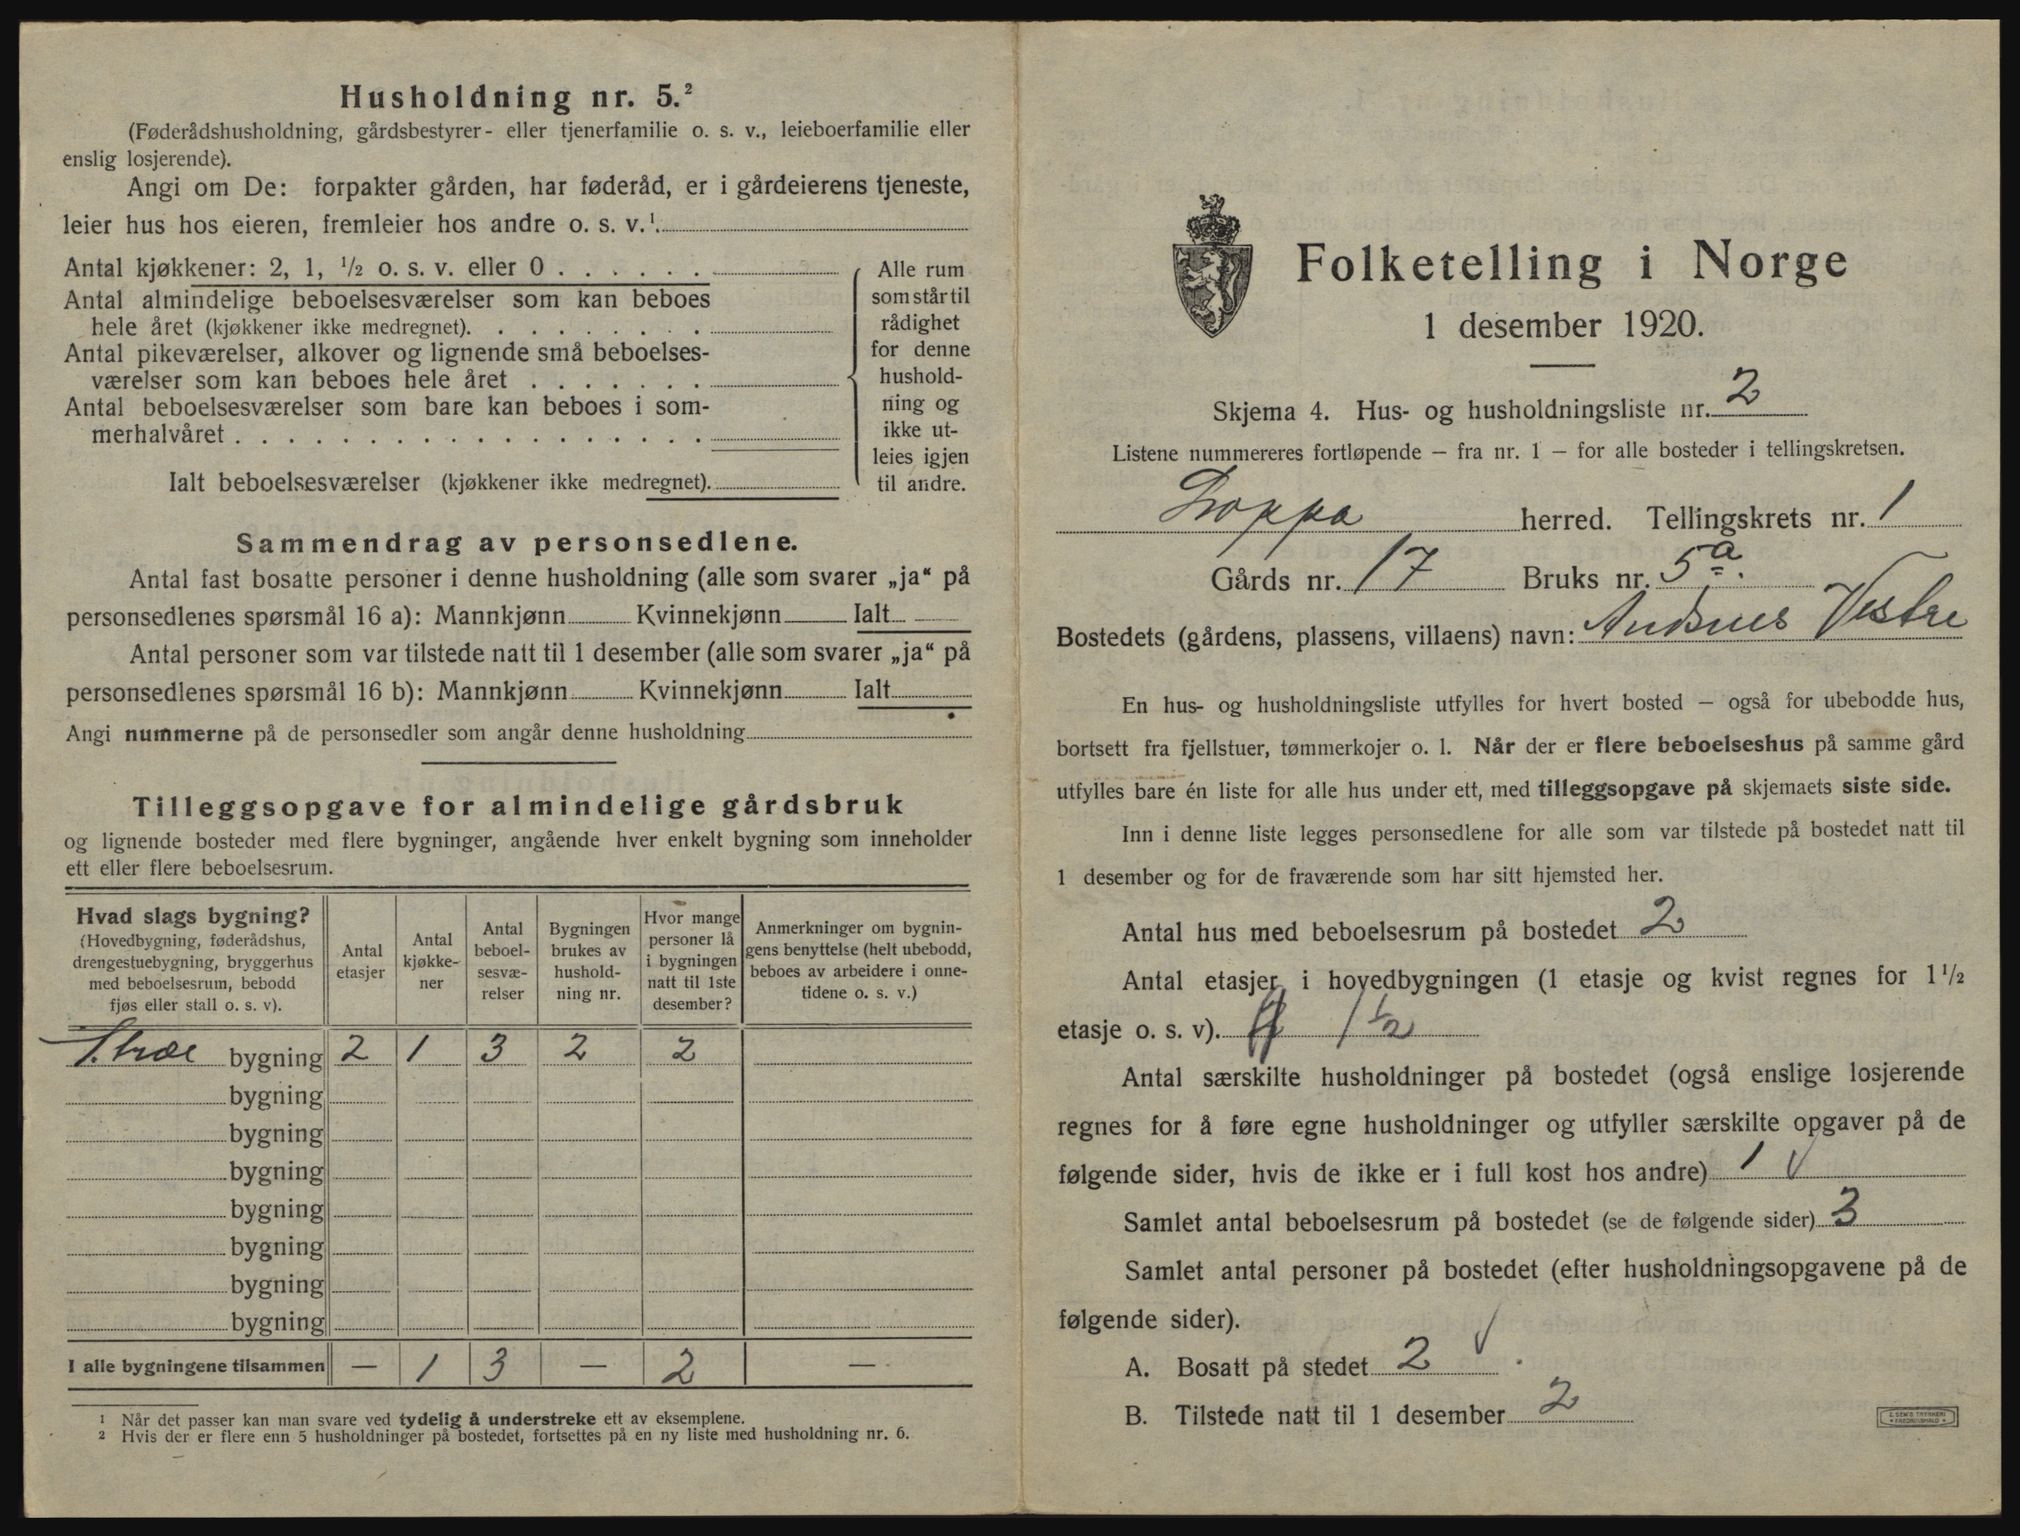 Husholdning nr. 5.²
(Føderådshusholdning, gårdsbestyrer- eller tjenerfamilie o. s. v., leieboerfamilie eller
enslig losjerende).
Angi om De: forpakter gården, har føderåd, er i gårdeierens tjeneste,
leier hus hos eieren, fremleier hos andre o. s. v.¹.
Antal kjøkkener: 2, 1, ¹/₂ o. s. v. eller 0 . . . . . .
Antal almindelige beboelsesværelser som kan beboes
hele året (kjøkkener ikke medregnet). . . . . . . . .
Antal pikeværelser, alkover og lignende små beboelses-
værelser som kan beboes hele året . . . . . . .
Antal beboelsesværelser som bare kan beboes i som-
merhalvåret . . . . . . . . . . . . . . . . . .
Ialt beboelsesværelser (kjøkkener ikke medregnet).
Alle rum
som står til
rådighet
for denne
hushold-
ning og
ikke ut-
leies igjen
til andre.
Sammendrag av personsedlene.
Antal fast bosatte personer i denne husholdning (alle som svarer „ja“ på
personsedlenes spørsmål 16 a): Mannkjønn Kvinnekjønn Ialt
Antal personer som var tilstede natt til 1 desember (alle som svarer „ja“ på
personsedlenes spørsmål 16 b): Mannkjønn Kvinnekjønn Ialt
Angi nummerne på de personsedler som angår denne husholdning
Tilleggsopgave for almindelige gårdsbruk
og lignende bosteder med flere bygninger, angående hver enkelt bygning som inneholder
ett eller flere beboelsesrum.
Hvad slags bygning?
(Hovedbygning, føderådshus,
drengestuebygning, bryggerhus
med beboelsesrum, bebodd
fjøs eller stall o. s. v).
Antal
etasjer
Antal
kjøkke-
ner
Antal
beboel-
sesvæ-
relser
Bygningen
brukes av
hushold-
ning nr.
Hvor mange
personer lå
i bygningen
natt til 1ste
desember?
Anmerkninger om bygnin-
gens benyttelse (helt ubebodd,
beboes av arbeidere i onne-
tidene o. s. v.)
bygning 2 1 3 2 2
bygning
bygning
bygning
bygning
bygning
bygning
bygning
I alle bygningene tilsammen — 1 3 — 2 —
¹ Når det passer kan man svare ved tydelig å understreke ett av eksemplene.
² Hvis der er flere enn 5 husholdninger på bostedet, fortsettes på en ny liste med husholdning nr. 6.
Folketelling i Norge
1 desember 1920.
Skjema 4. Hus- og husholdningsliste nr. 2
Listene nummereres fortløpende – fra nr. 1 – for alle bosteder i tellingskretsen.
Loppa herred. Tellingskrets nr. 1
Gårds nr. 17 Bruks nr. 5a.
Bostedets (gårdens, plassens, villaens) navn: Andsnes Vestre
En hus- og husholdningsliste utfylles for hvert bosted – også for ubebodde hus,
bortsett fra fjellstuer, tømmerkojer o. l. Når der er flere beboelseshus på samme gård
utfylles bare én liste for alle hus under ett, med tilleggsopgave på skjemaets siste side.
Inn i denne liste legges personsedlene for alle som var tilstede på bostedet natt til
1 desember og for de fraværende som har sitt hjemsted her.
Antal hus med beboelsesrum på bostedet 2
Antal etasjer i hovedbygningen (1 etasje og kvist regnes for 1¹/₂
etasje o. s. v). 1½
Antal særskilte husholdninger på bostedet (også enslige losjerende
regnes for å føre egne husholdninger og utfyller særskilte opgaver på de
følgende sider, hvis de ikke er i full kost hos andre) 1 √
Samlet antal beboelsesrum på bostedet (se de følgende sider) 3
Samlet antal personer på bostedet (efter husholdningsopgavene på de
følgende sider).
A. Bosatt på stedet 2 √
B. Tilstede natt til 1 desember 2